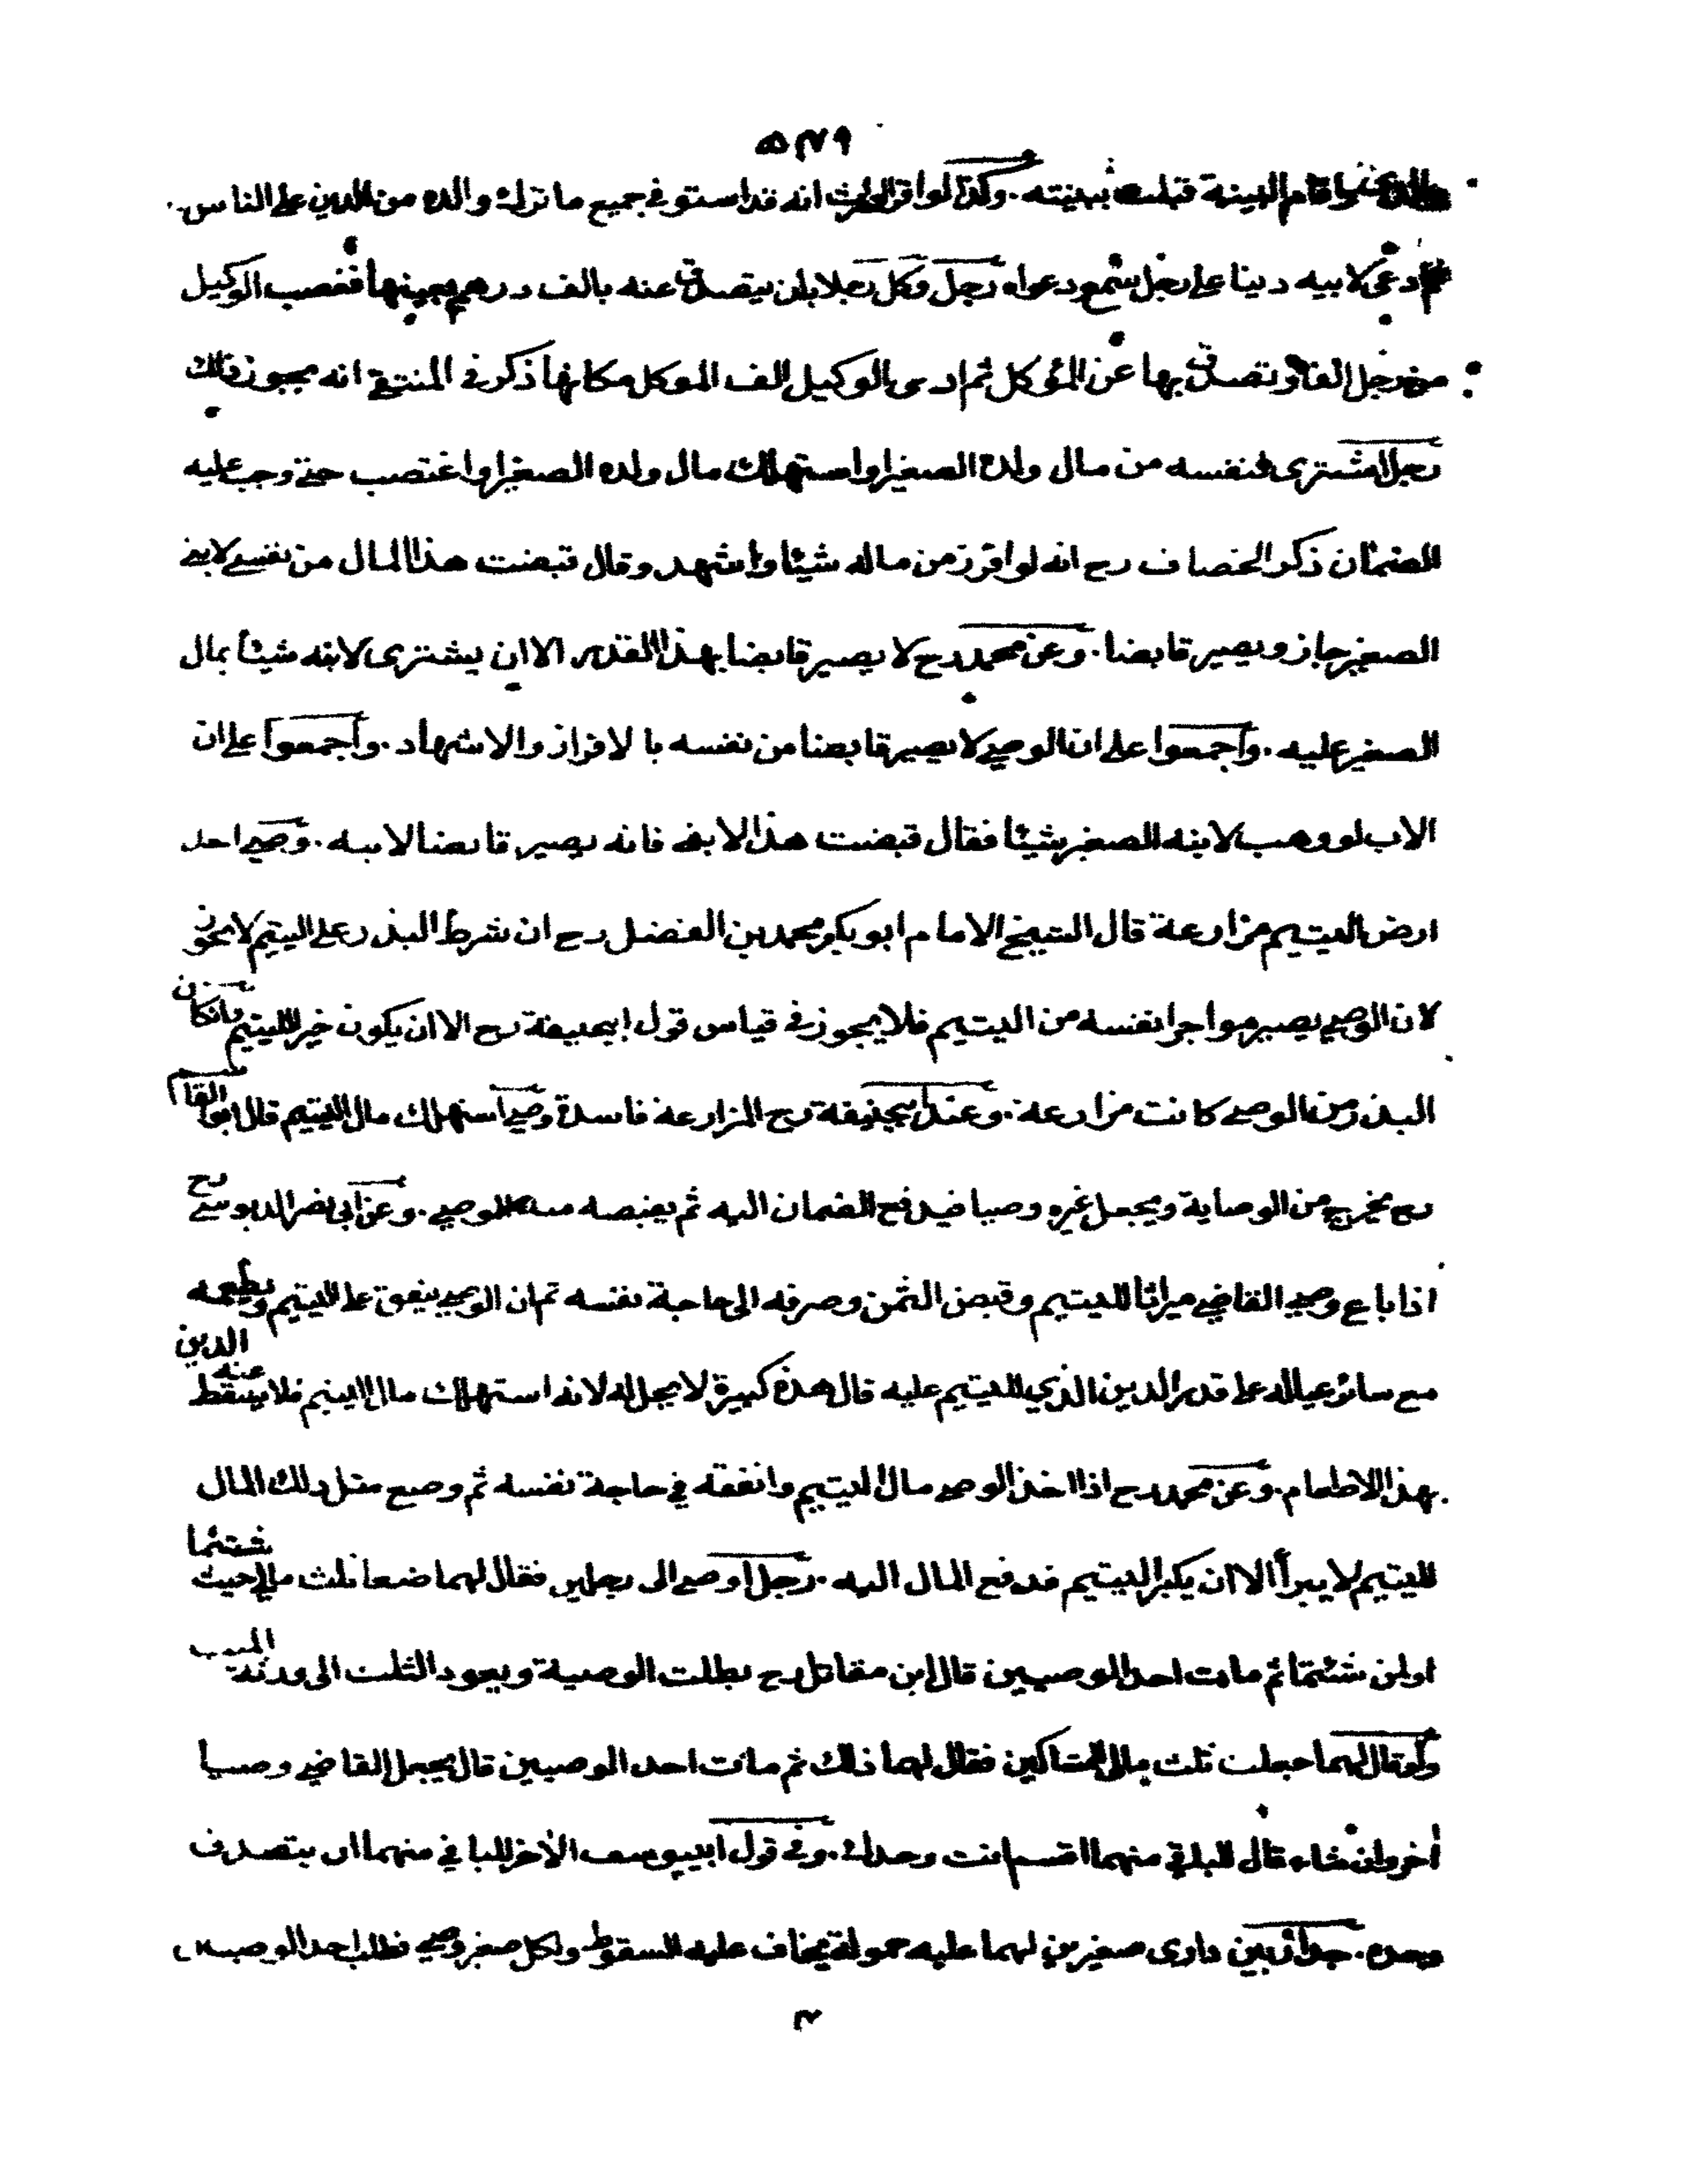 ٥٣٧٩
واقام البينة قبلت بينته . وكذا لو اقر الوارث انه قد استوفى جميع ما ترك والده من الدين على الناس .
ثم ادعى لابيه دينا على رجل تسمع دعواه رجل وكل رجلا بان يتصدق عنه بالف درهم بعينها فغصب الوكيل
من رجل الفا وتصدق بها عن الموكل ثم ادى الوكيل الف الموكل مكانها ذكر في المنتقى انه يجوز ذلك
رجل اشترى لنفسه من مال ولده الصغير او استهلك مال ولده الصغير او اغتصب حتى وجب عليه
الضمان ذكر الخصاف رح انه لو افرز من ماله شيئا واشهد وقال قبضت هذا المال من نفسي لابني
الصغير جاز ويصير قابضا . وعن محمد رح لا يصير قابضا بهذا القدر الا ان يشترى لابنه شيئا بمال
الصغير عليه . واجمعوا على ان الوصي لا يصير قابضا من نفسه بالافراز والاشهاد . واجمعوا على ان
الاب لو وهب لابنه الصغير شيئا فقال قبضت هذا لابني فانه يصير قابضا لابنه . وصي اخذ
ارض اليتيم مزارعة قال الشيخ الامام ابو بكر محمد بن الفضل رح ان شرط البذر على اليتيم لا يجوز
لان الوصي يصير مواجرا نفسه من اليتيم فلا يجوز في قياس قول ابيحنيفة رح الا ان يكون خيرا لليتيم وانكان
البذر من الوصي كانت مزارعة . وعند ابيحنيفة رح المزارعة فاسدة وصي استهلك مال اليتيم قال ابو القاسم
رح يخرج من الوصاية ويجعل غيره وصيا فيدفع الضمان اليه ثم يقبضه منه الوصي . وعن ابي نصر الدبوسي رح
اذا باع وصي القاضي ميراثا لليتيم وقبض الثمن وصرفه الى حاجة نفسه ثم ان الوصي ينفق على اليتيم ويطعمه
مع سائر عياله على قدر الدين الذي لليتيم عليه قال هذه كبيرة لا يحل له لانه استهلك مال اليتيم فلا يسقط عنه الدين
بهذا الاطعام . وعن محمد رح اذا اخذ الوصي مال اليتيم وانفقه في حاجة نفسه ثم وضع مثل ذلك المال
لليتيم لا يبرأ الا ان يكبر اليتيم فدفع المال اليه . رجل اوصى الى رجلين فقال لهما ضعا ثلث مالي حيث شئتما
او لمن شئتما ثم مات احد الوصيين قال ابن مقاتل رح بطلت الوصية ويعود الثلث الى ورثة الميت
ولو قال لهما جعلت ثلث مالي للمساكين فقال لهما ذلك ثم مات احد الوصيين قال يجعل القاضي وصيا
أخر وان شاء قال للباقي منهما اقسم انت وحدك . وفي قول ابييوسف الأخر للباقي منهما ان يتصدق
وحده . جدار بين دارى صغيرين لهما عليه حمولة يخاف عليه السقوط ولكل صغير وصي فطلب احد الوصيين